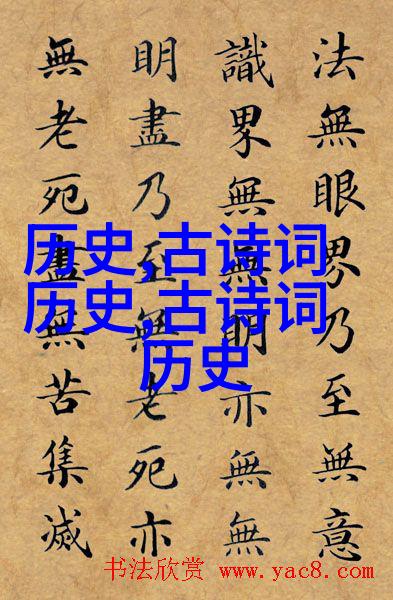 法無眼界乃至無意
識界無無明亦無無
明盡乃至無老死亦
無老死盡無苦集滅
历史,古诗词
历史,古诗词
历史
书法欣赏 www.yac8.com